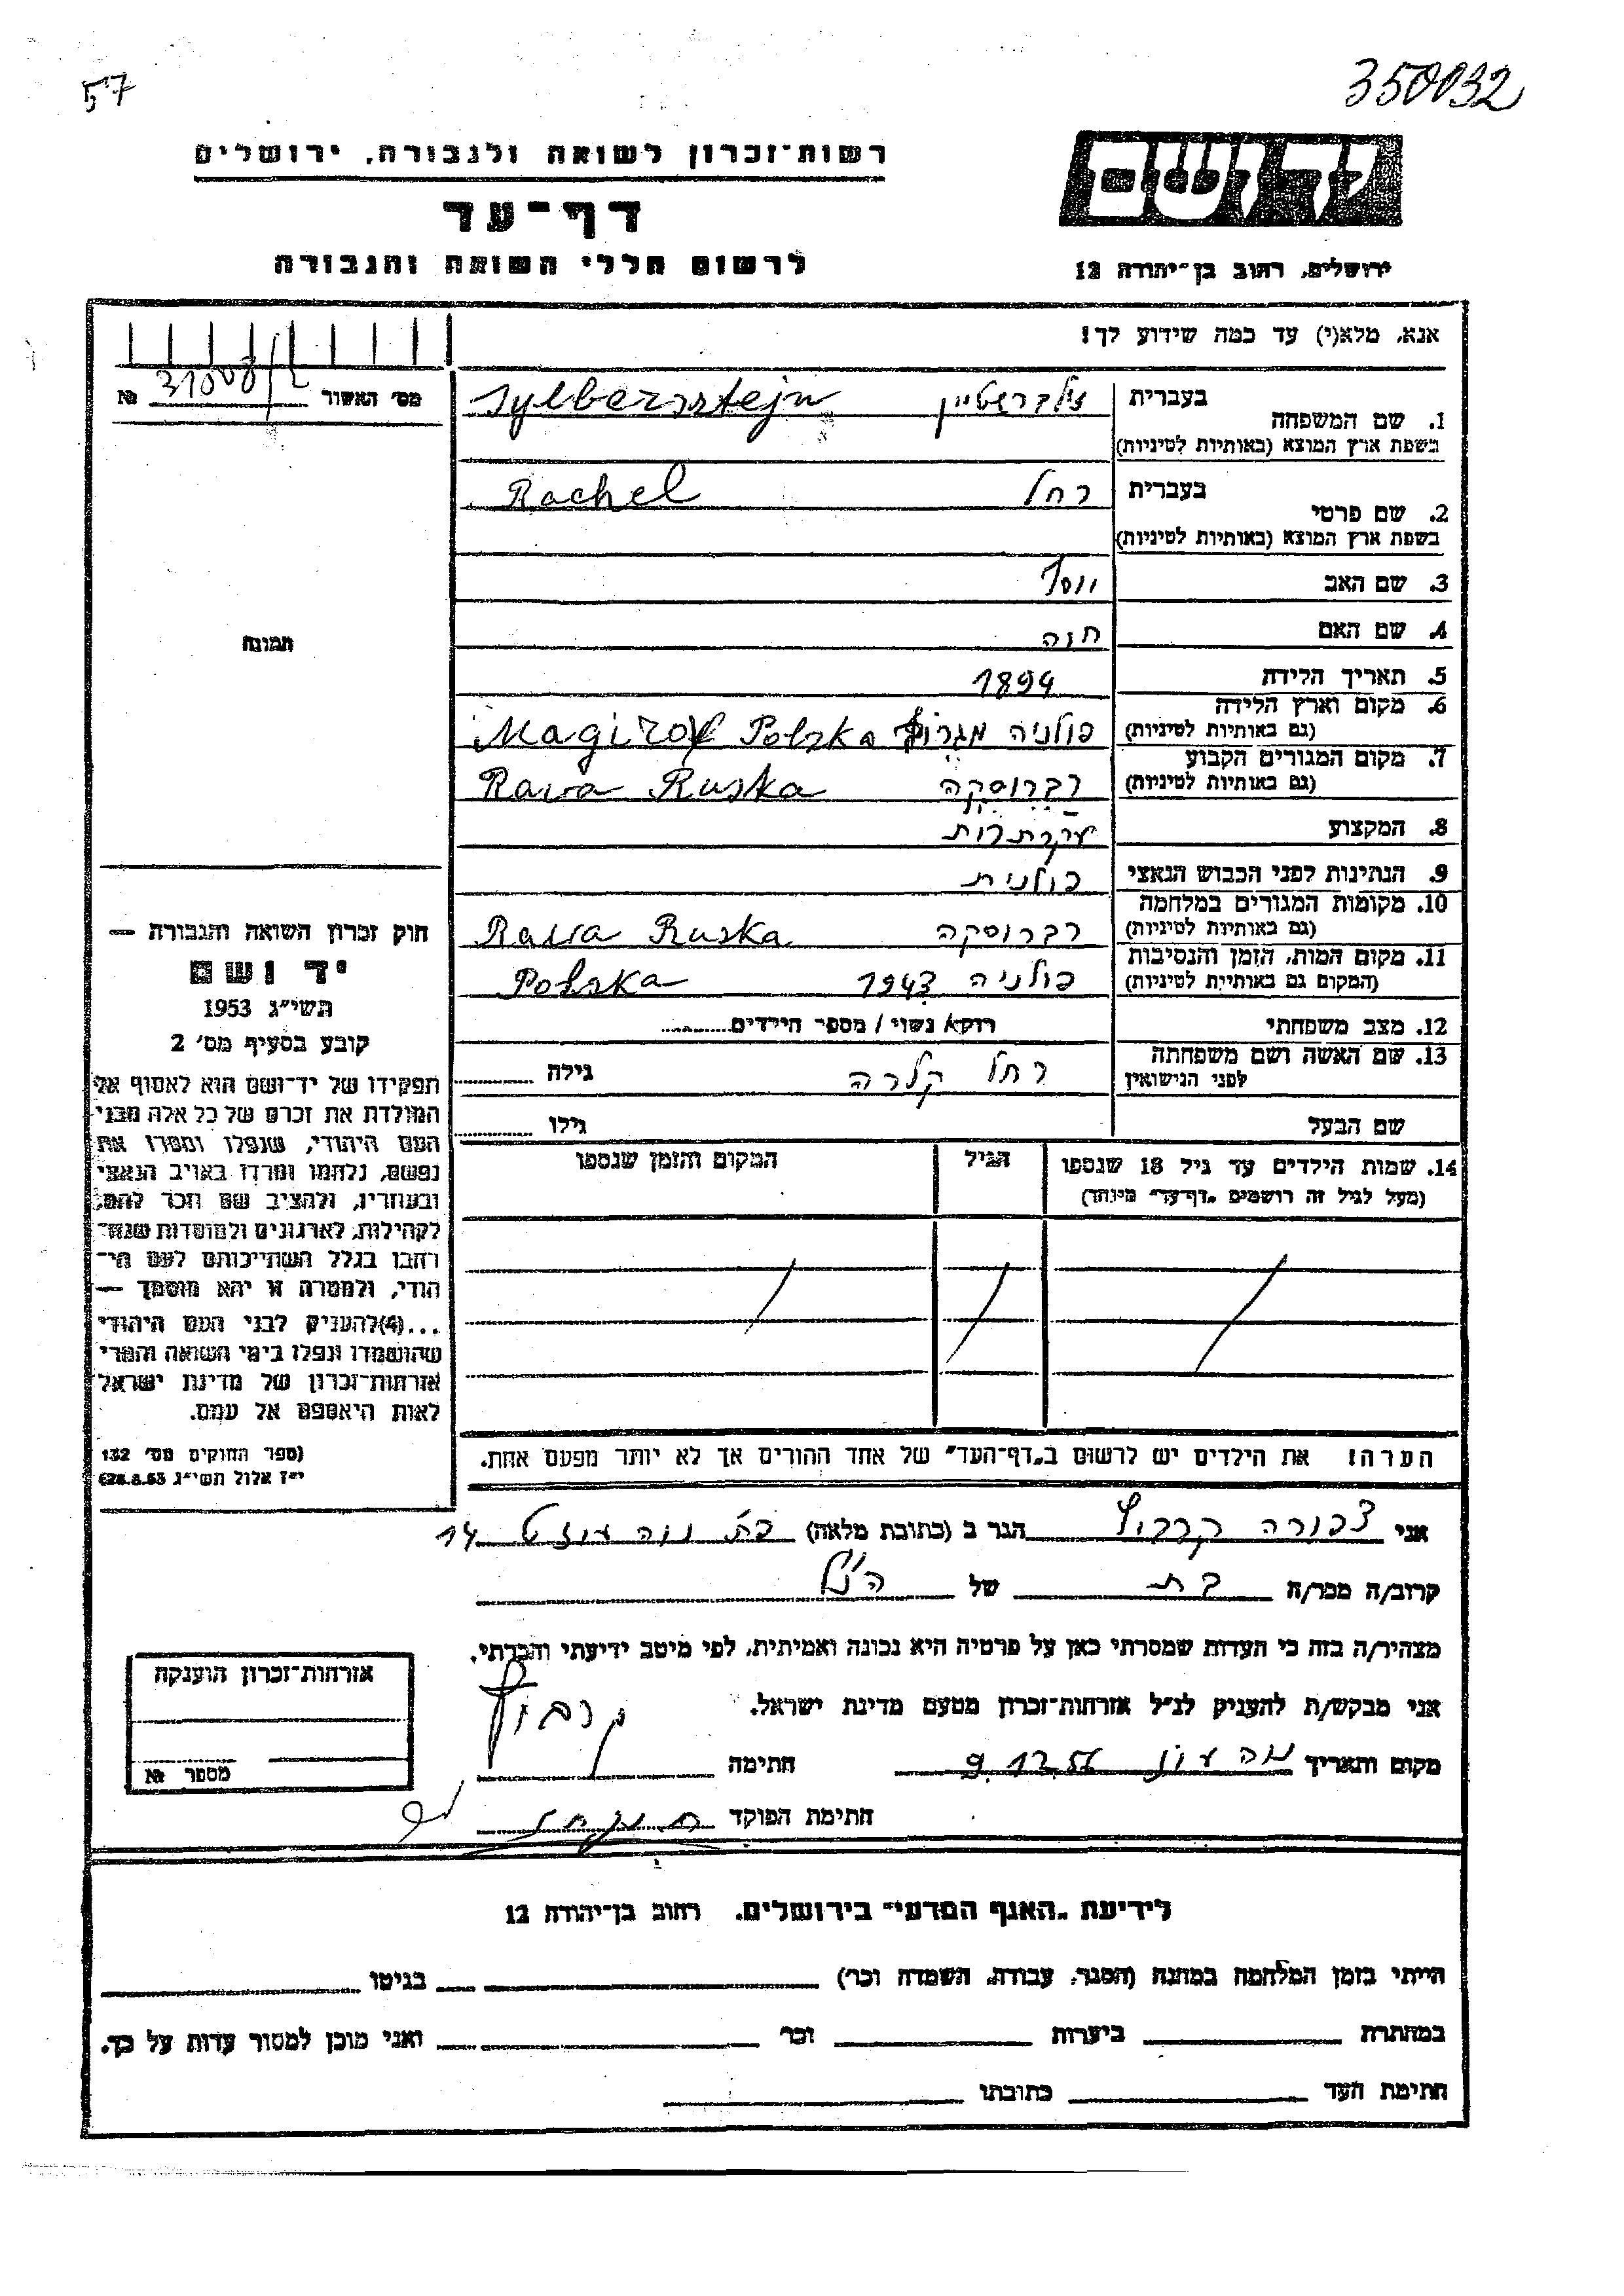 57
350032
רשות־זכרון לשואה ולגבורה, ירושלים
ידושם
דף־עד
לרשום חללי השואה והגבורה
ירושלים, רחוב בן־יהודה 12
אנא, מלא(י) עד כמה שידוע לך!
מס׳ האשור № 31008/2
1. שם המשפחה
בעברית זילברשטיין Sylbersstejn
בשפת ארץ המוצא (באותיות לטיניות)
2. שם פרטי
בעברית רחל Rachel
בשפת ארץ המוצא (באותיות לטיניות)
3. שם האב יוסף
תמונה
4. שם האם חנה
5. תאריך הלידה 1894
6. מקום וארץ הלידה פולניה Polska
(גם באותיות לטיניות)
7. מקום המגורים הקבוע רברוסקה Rawa Ruska
(גם באותיות לטיניות)
8. המקצוע עקרת
9. הנתינות לפני הכבוש הנאצי פולנית
10. מקומות המגורים במלחמה רברוסקה Rawa Ruska
(גם באותיות לטיניות)
11. מקום המות, הזמן והנסיבות פולניה 1943 Polska
(המקום גם באותיית לטיניות)
12. מצב משפחתי רווק/ נשוי / מספר הילדים
13. שם האשה ושם משפחתה רחל קלרה גילה
לפני הנישואין
שם הבעל גילו
14. שמות הילדים עד גיל 18 שנספו הגיל המקום והזמן שנספו
(מעל לגיל זה רושמים „דף־עד״ מיוחד)
חוק זכרון השואה והגבורה —
יד ושם
תשי״ג 1953
קובע בסעיף מס׳ 2
תפקידו של יד־ושם הוא לאסוף אל
המולדת את זכרם של כל אלה מבני
העם היהודי, שנפלו ומסרו את
נפשם, נלחמו ומרדו באויב הנאצי
ובעוזריו, ולהציב שם וזכר להם,
לקהילות, לארגונים ולמוסדות שנח־
רבו בגלל השתייכותם לעם הי־
הודי, ולמטרה זו יהא מוסמך —
...(4)להעניק לבני העם היהודי
שהושמדו ונפלו בימי השואה והמרי
אזרחות־זכרון של מדינת ישראל
לאות היאספם אל עמם.
(ספר החוקים מס׳ 132
י״ז אלול תשי״ג 28.8.53)
הערה! את הילדים יש לרשום ב„דף־העד״ של אחד ההורים אך לא יותר מפעם אחת.
אני צפורה הגר ב (כתובת מלאה) נוה 14
קרוב/ה מכר/ה בת של הנ״ל
מצהיר/ה בזה כי העדות שמסרתי כאן על פרטיה היא נכונה ואמיתית, לפי מיטב ידיעתי והכרתי.
אני מבקש/ת להעניק לנ״ל אזרחות־זכרון מטעם מדינת ישראל.
מקום ותאריך נוה 9.12.56 חתימה
חתימת הפוקד
אזרחות־זכרון הוענקה
מספר №
לידיעת „האגף המדעי״ בירושלים. רחוב בן־יהודה 12
הייתי בזמן המלחמה במחנה (הסגר, עבודה, השמדה וכו׳) בגיטו
במחתרת ביערות וכו׳ ואני מוכן למסור עדות על כך.
חתימת העד כתובתו